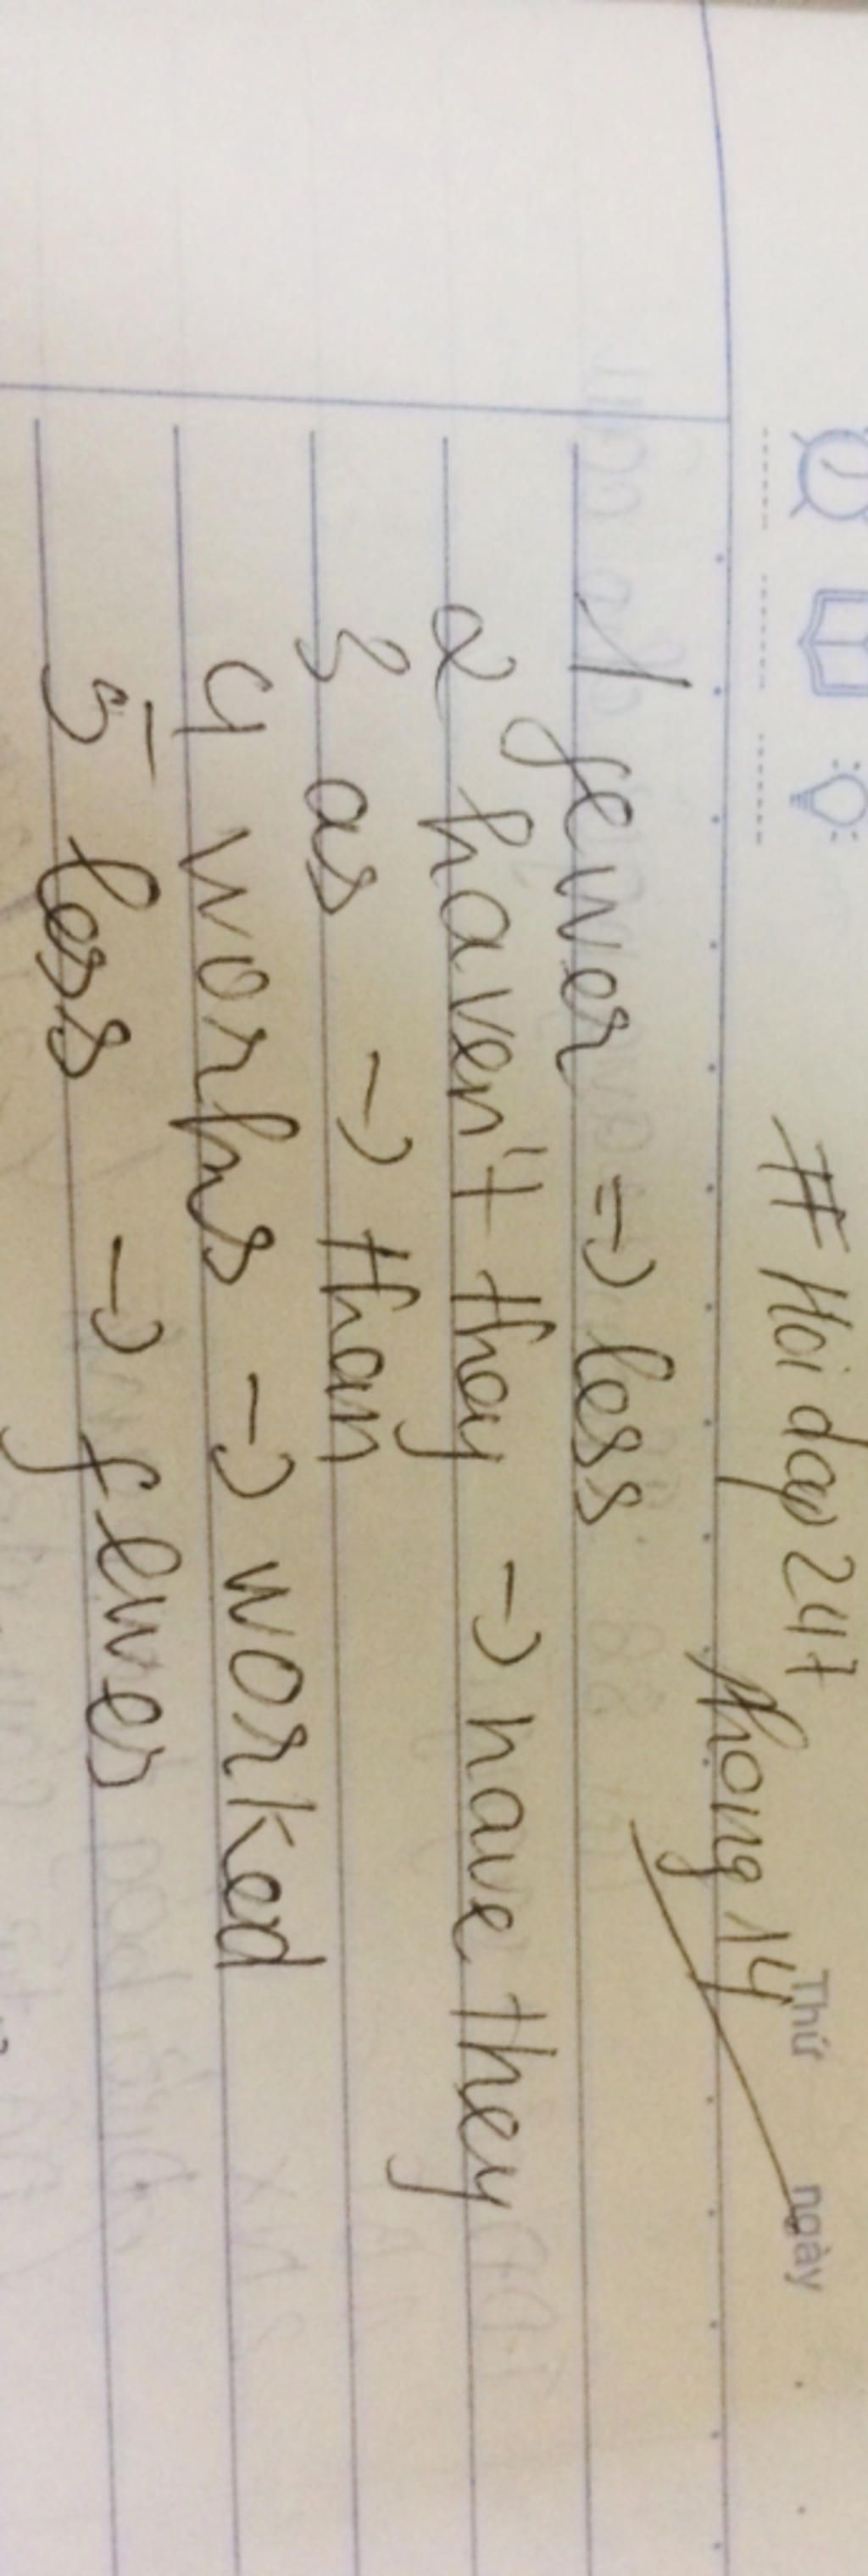 Thứ ngày
# Hoidap247
Phong 14
1 fewer => less
2 haven't they -> have they
3 as -> than
4 works -> worked
5 less -> fewer